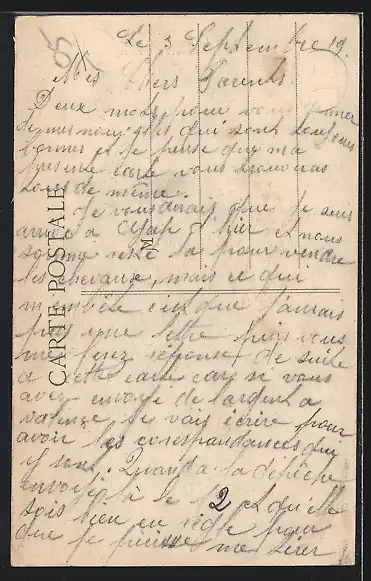 Le 3 Septembre 19.
Mes Chers Parents.
Deux mots pour vous donner
de mes nouvelles qui sont toujours
bonnes et je pense que ma
présente carte vous trouveras
tous de même.
Je vous dirais que je suis
arrivé à Gap hier et nous
somme resté la pour vendre
les chevaux, mais ce qui
m'embête c'est que j'aurais
pas une lettre puis vous
me ferez réponse de suite
a cette carte car si vous
avez envoyé de l'argent a
valence je vais écrire pour
avoir les correspondances qui
y sont. Quand a la dépêche
envoyé la le 2 et qu'elle
sois bien en règle pour
que je puisse me
CARTE POSTALE
M